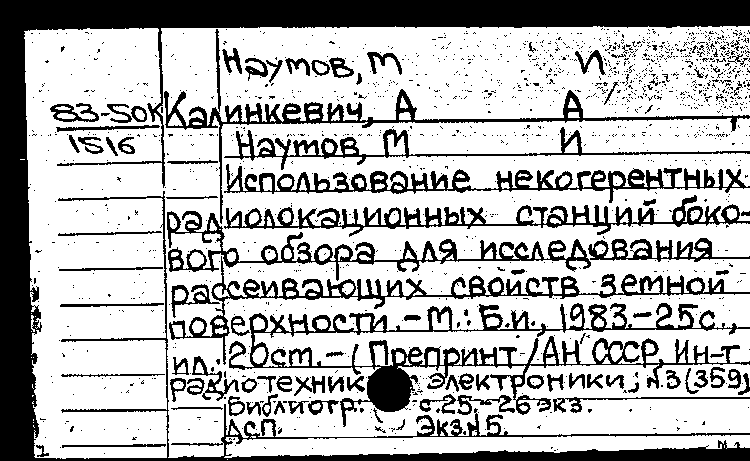 Наутов, М И
83-50К Калинкевич, А А
1516 Наутов, М И
Использование некогерентных
радиолокационных станций боко-
вого обзора для исследования
рассеивающих свойств земной
поверхности.-М.: Б.и., 1983.-25с.,
ил.; 20см.-(Препринт/АН СССР, Ин-т
радиотехник электроники; N.3(359)
Библиогр.: с.25-26 экз.
Дсп. Экз.N5.